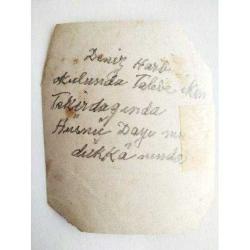 Deniz Harb
okulunda Talebe iken
Tekirdagında
Hüsnü Dayı nın
dükkânında